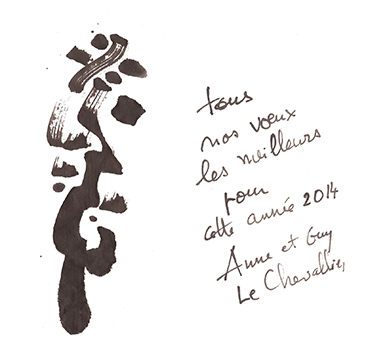 tous
nos vœux
les meilleurs
pour
cette année 2014
Anne et Guy
Le Chevallier